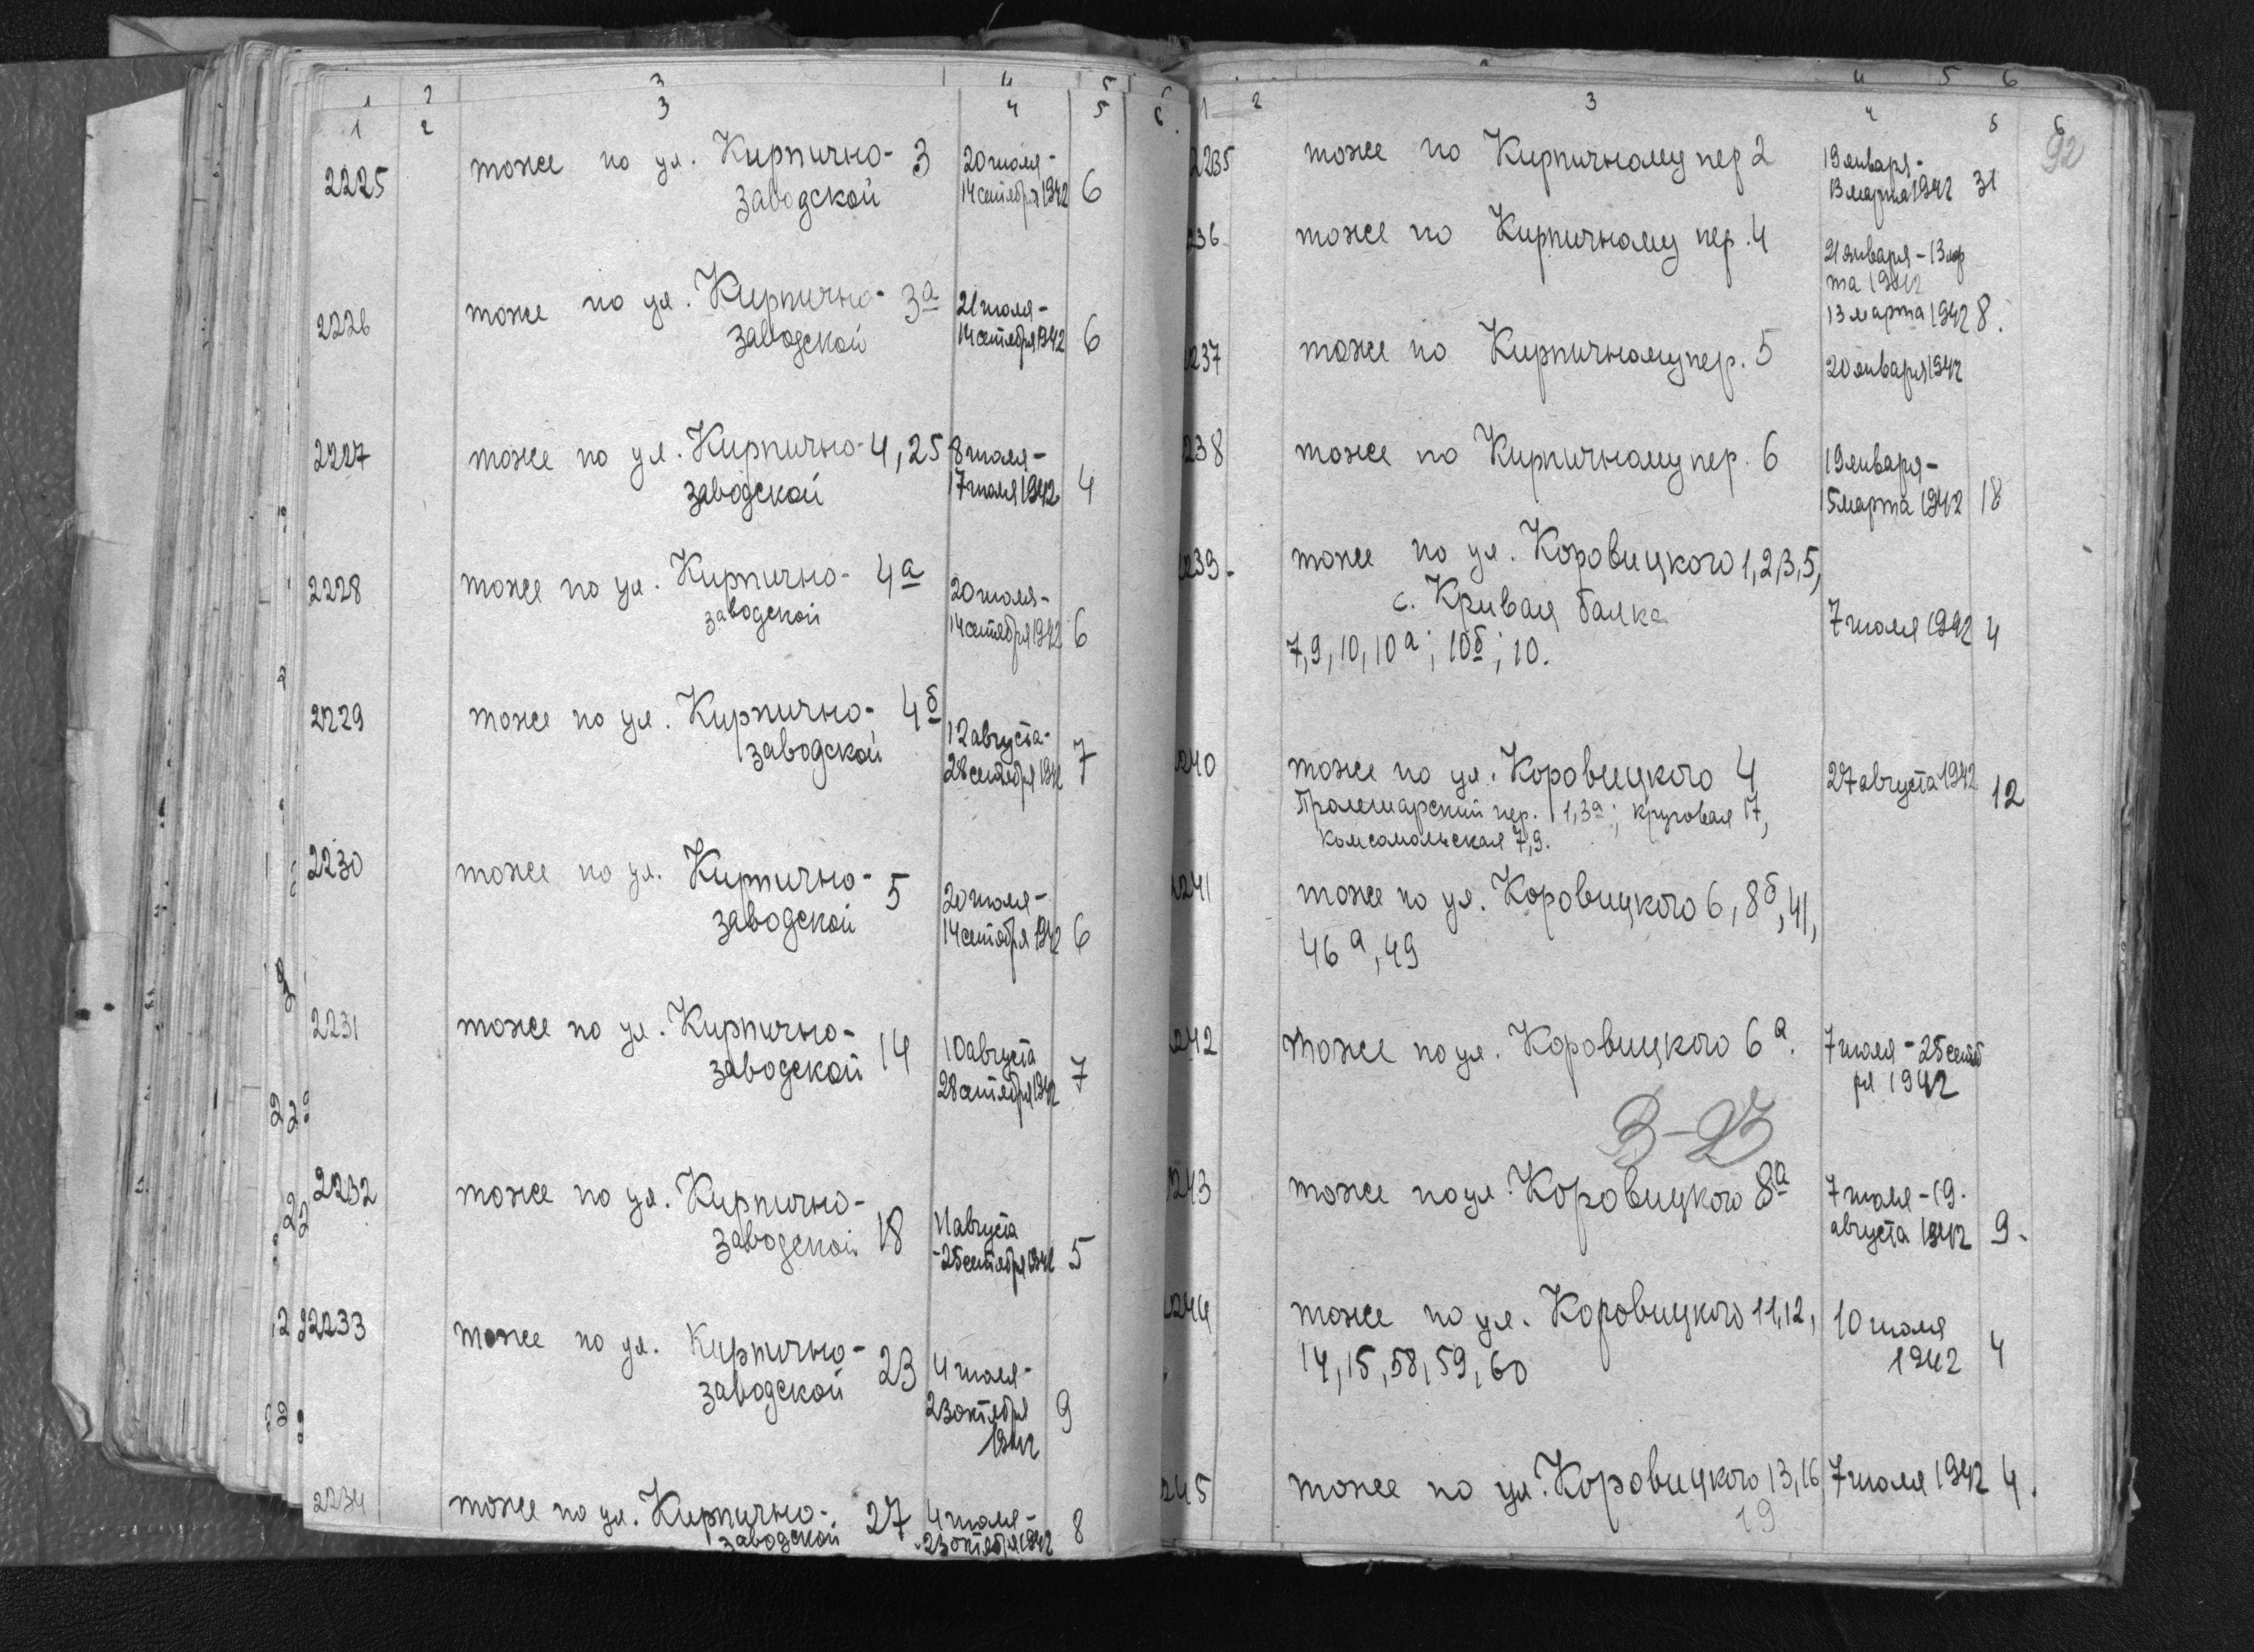 1 2 3 4 5 6
2225 тоже по ул. Кирпично- 3 20 июля -
заводской 14 сентября 1942 6
2226 тоже по ул. Кирпично- 3а 21 июля -
заводской 14 сентября 1942 6
2227 тоже по ул. Кирпично- 4, 25 8 июля -
заводской 17 июля 1942 4
2228 тоже по ул. Кирпично- 4а 20 июля -
заводской 14 сентября 1942 6
2229 тоже по ул. Кирпично- 4б 12 августа -
заводской 28 сентября 1942 7
2230 тоже по ул. Кирпично- 5 20 июля -
заводской 14 сентября 1942 6
2231 тоже по ул. Кирпично- 14 10 августа
заводской 28 сентября 1942 7
2232 тоже по ул. Кирпично- 18 11 августа
заводской - 25 сентября 1942 5
2233 тоже по ул. Кирпично- 23 4 июля -
заводской 23 октября 9
1942
2234 тоже по ул. Кирпично- 27 4 июля -
заводской - 23 октября 1942 8
1 2 3 4 5 6
92
2235 тоже по Кирпичному пер 2 19 января -
13 марта 1942 31
236 тоже по Кирпичному пер. 4 21 января - 13 мар
та 1942
13 марта 1942 8.
237 тоже по Кирпичному пер. 5 20 января 1942
238 тоже по Кирпичному пер. 6 19 января -
15 марта 1942 18
239 - тоже по ул. Коровицкого 1, 2, 3, 5,
с. Кривая балка
7, 9, 10, 10а; 10б; 10. 7 июля 1942 4
240 тоже по ул. Коровицкого 4 27 августа 1942 12
Пролетарский пер. 1, 3а; Круговая 17,
Комсомольская 7, 9.
241 тоже по ул. Коровицкого 6, 8б, 41,
46а, 49
242 тоже по ул. Коровицкого 6а. 7 июля - 25 сентяб
ря 1942
В-23
243 тоже по ул. Коровицкого 8а 7 июля - 19.
августа 1942 9.
244 тоже по ул. Коровицкого 11, 12, 10 июля
14, 15, 58, 59, 60 1942 4
245 тоже по ул. Коровицкого 13, 16 7 июля 1942 4.
19